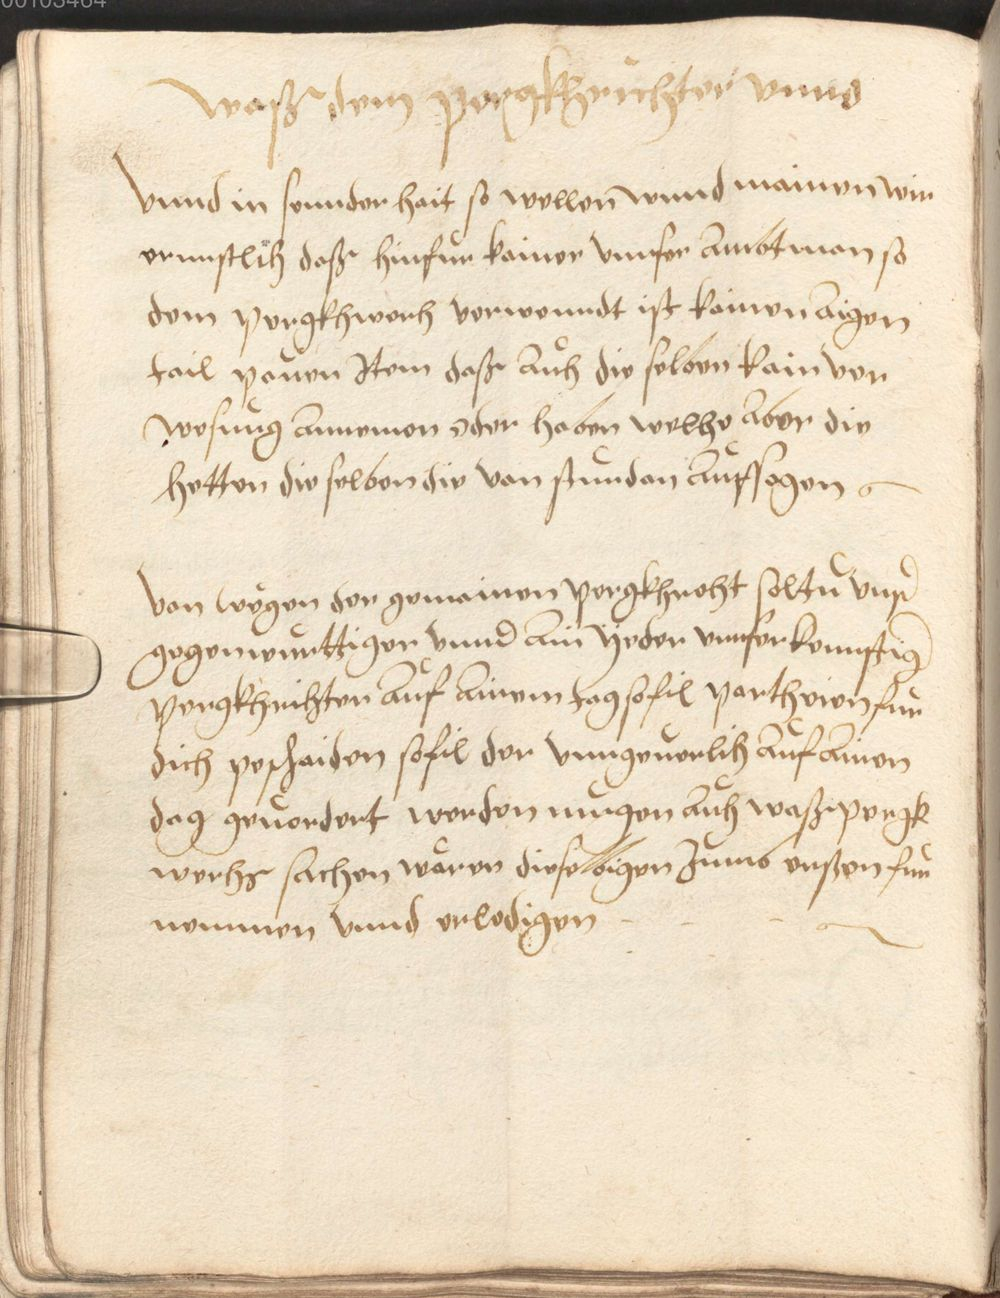 00103464
Waß dem pergkhrichter vnns
Vnnd in sonnderhait so wellen vnnd mainen wir
ernnstlich daß hinfur kainer vnnser Ambtman so
dem pergkhwerch verwonndt ist kainen Aigen
tail pauen Item daß Auch die selben kain ver
wesung Annemen oder haben welhe Aber die
hetten die selben die von stundan Aufsagen
Von wegen der gemainen pergkhrecht soltu vnnser
gegenwurttiger vnnd Ain yeder vnnser konnftig
pergkhrichter Auf Ainem tag sofil partheien fur
dich peschaiden sofil der vnngeuerlich Auf Ainen
dag geuordert werden mugen Auch waß pergk
werchs sachen wären dieselbigen Zumb ersten fur
nemmen vnnd erledigen